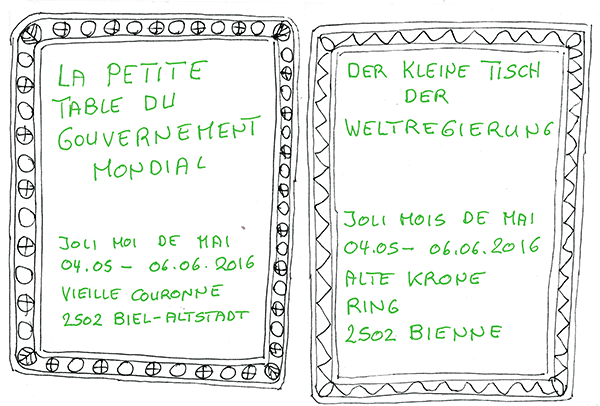 LA PETITE
TABLE DU
GOUVERNEMENT
MONDIAL
JOLI MOI DE MAI
04.05 - 06.06.2016
VIEILLE COURONNE
2502 BIEL-ALTSTADT
DER KLEINE TISCH
DER
WELTREGIERUNG
JOLI MOIS DE MAI
04.05 - 06.06.2016
ALTE KRONE
RING
2502 BIENNE